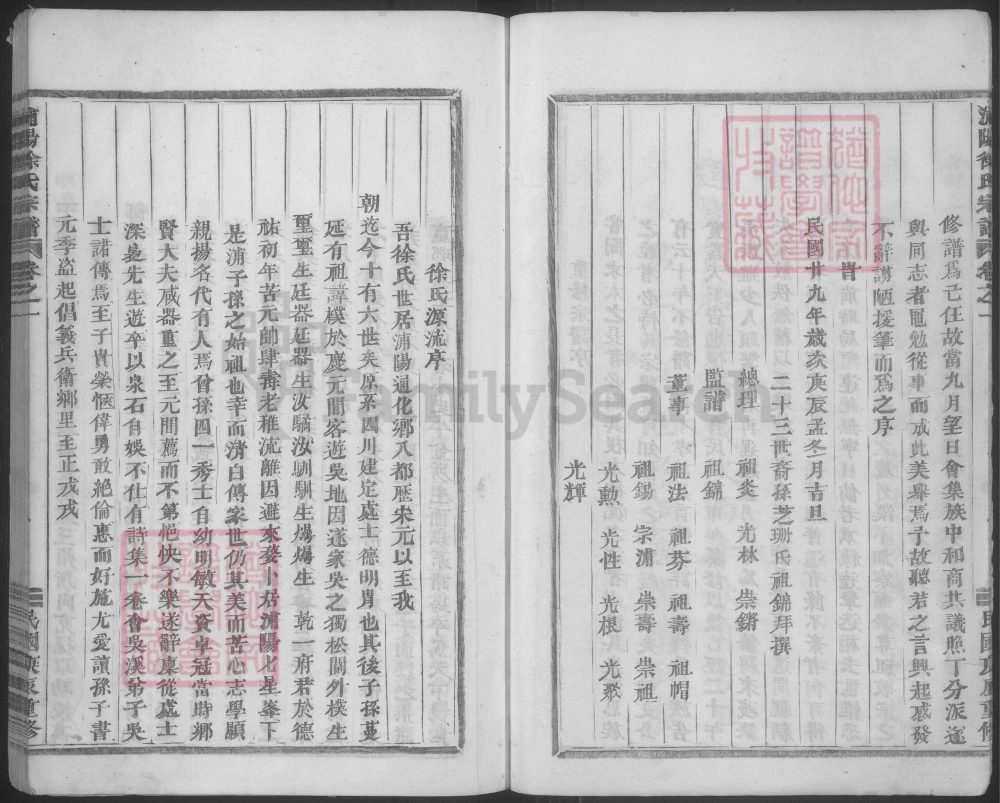 浦陽徐氏宗譜 卷之一 民國庚辰重修
修譜爲己任故當九月望日會集族中和商共議照丁分派遂
與同志者黽勉從事而成此美舉焉予故聽若之言興起感發
不辭譾陋援筆而爲之序
旹
民國廿九年歲次庚辰孟冬月吉旦
二十三世裔孫芝珊氏祖錦拜撰
總理 祖炎 光林 崇鏘
監譜 祖錦
董事 祖法 祖芬 祖壽 祖帽
祖錫 宗浦 崇壽 崇祖
光勲 光性 光根 光聚
光輝
徐氏源流序
吾徐氏世居浦陽通化鄉八都歷宋元以至我
朝迄今十有六世矣原系四川建定處士德明胄也其後子孫蔓
延有祖諱模於慶元間客遊吳地因遂家吳之獨松關外模生
璽璽生廷器廷器生汝驕汝馴馴生煬煬生 乾一府君於德
祐初年苦元帥肆毒老稚流離因避來婺卜居浦陽北星峯下
是浦子孫之始祖也幸而清白傳家世仍其美而苦心志學顯
親揚名代有人焉曾孫四一秀士自幼明敏天資卓冠當時鄉
賢大夫咸器重之至元間薦而不第悒怏不樂遂辭廩從處士
深裊先生遊卒以泉石自娛不仕有詩集一卷會吳溪弟子吳
士諸傳焉至子貴榮愜偉勇敢絶倫惠而好施尤愛讀孫子書
元季盜起倡義兵衛鄉里至正戊戌
浦陽徐氏宗譜 卷之一 民國庚辰重修
FamilySearch